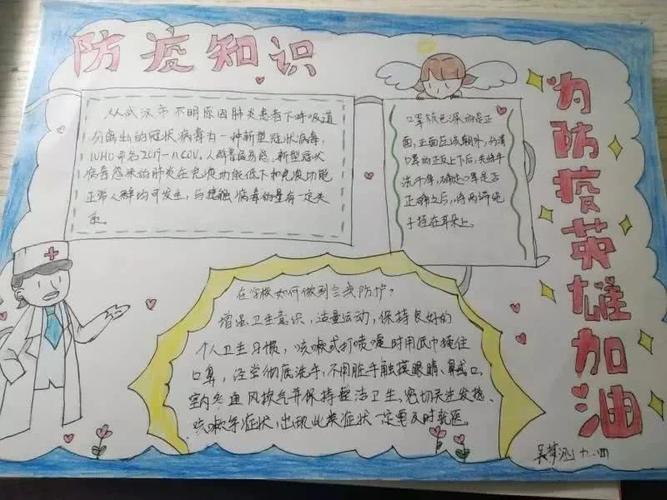 防疫知识
从武汉市不明原因肺炎患者下呼吸道
分离出的冠状病毒为一种新型冠状病毒,
WHO命名2019-nCOV。人群普遍易感。新型冠状
病毒感染的肺炎在免疫功能低下和免疫功能
正常人群均可发生,与接触病毒的量有一定关
系。
口罩颜色深的是正
面,正面应该朝外,
口罩的正反上下后,先将手
洗干净,确定口罩是否
正确之后,将两端绳
子挂在耳朵上。
为防疫英雄加油
在学校如何做到防护?
增强卫生意识,适量运动,保持良好的
个人卫生习惯,咳嗽或打喷嚏时用纸巾掩住
口鼻,经常彻底洗手,不用脏手触摸眼睛、鼻或口,
室内多通风换气并保持整洁卫生,密切关注发热、
咳嗽等症状,出现此类症状一定要及时就医。